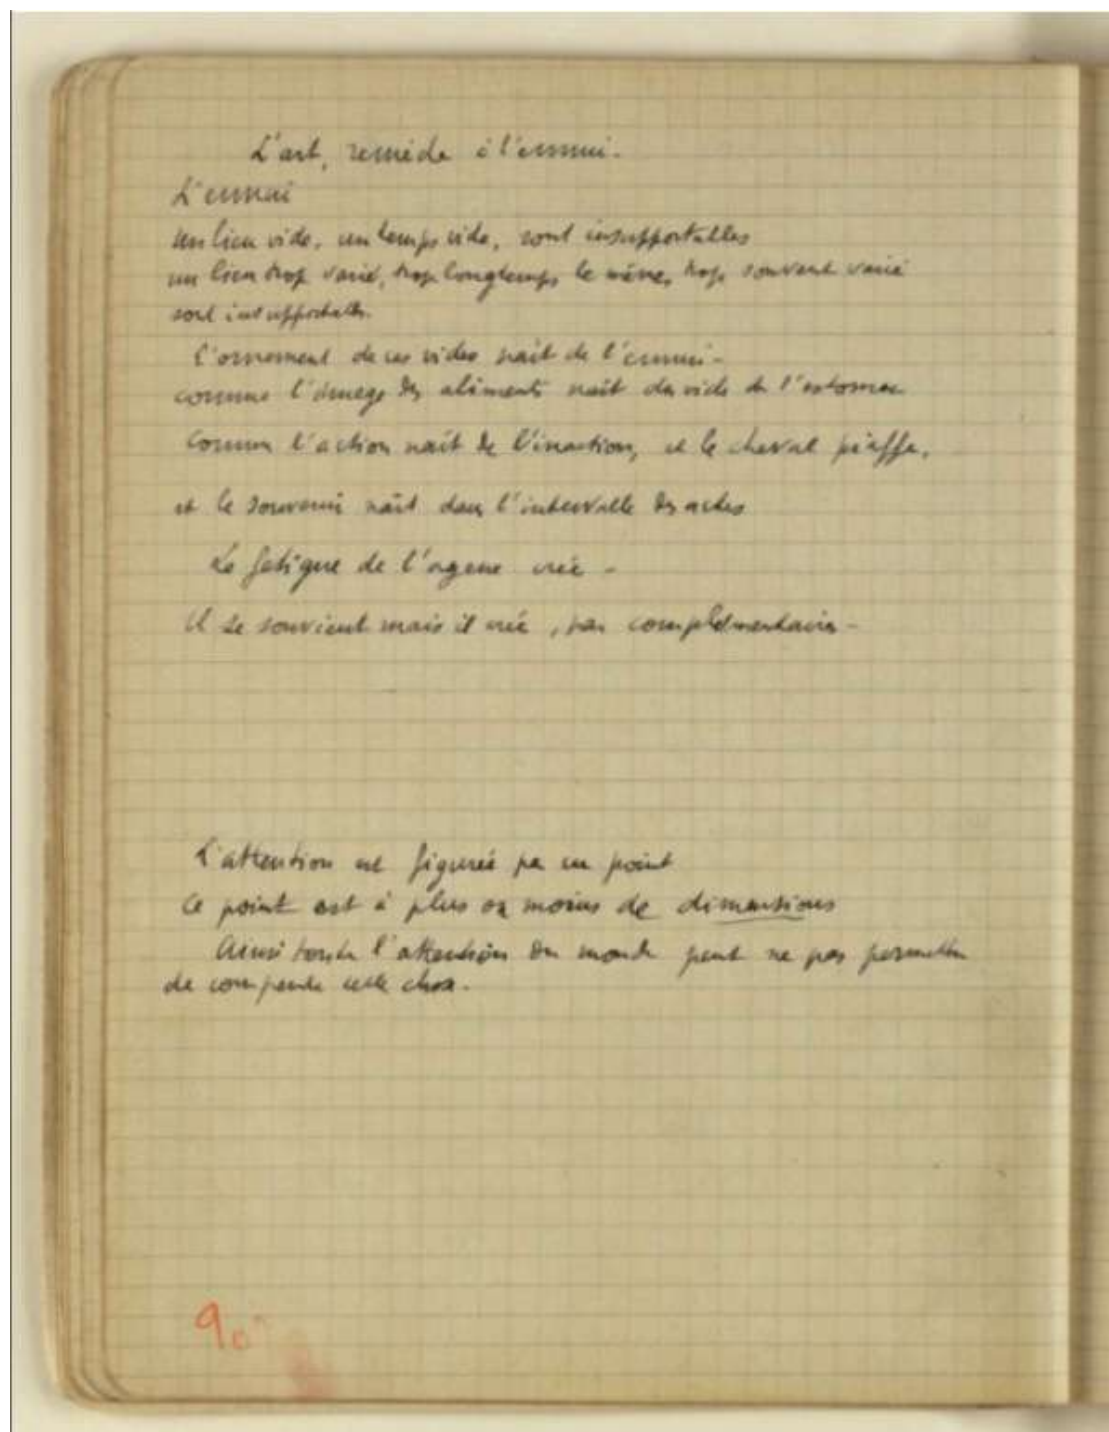 L'art, remède à l'ennui.
L'ennui
Un lieu vide, un temps vide, sont insupportables
un lieu trop varié, trop longtemps le même, trop souvent varié
sont insupportables.
L'ornement de ces vides naît de l'ennui -
comme l'image des aliments naît du vide de l'estomac
Comme l'action naît de l'inaction, et le cheval piaffe,
et le souvenir naît dans l'intervalle des actes
La fatigue de l'organe crée -
Il se souvient mais il crée, par complémentaires -
L'attention est figurée par un point
Ce point est à plus ou moins de dimensions
Ainsi toute l'attention du monde peut ne pas permettre
de comprendre cette chose.
90